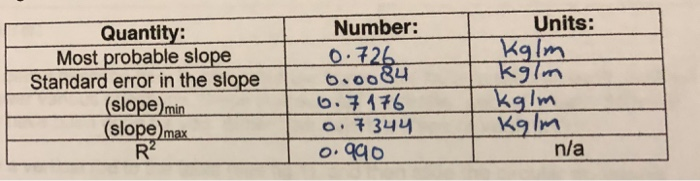 Quantity: Number: Units:
Most probable slope 0.726 kg/m
Standard error in the slope 0.0084 kg/m
(slope)min 0.7176 kg/m
(slope)max 0.7344 kg/m
R² 0.990 n/a